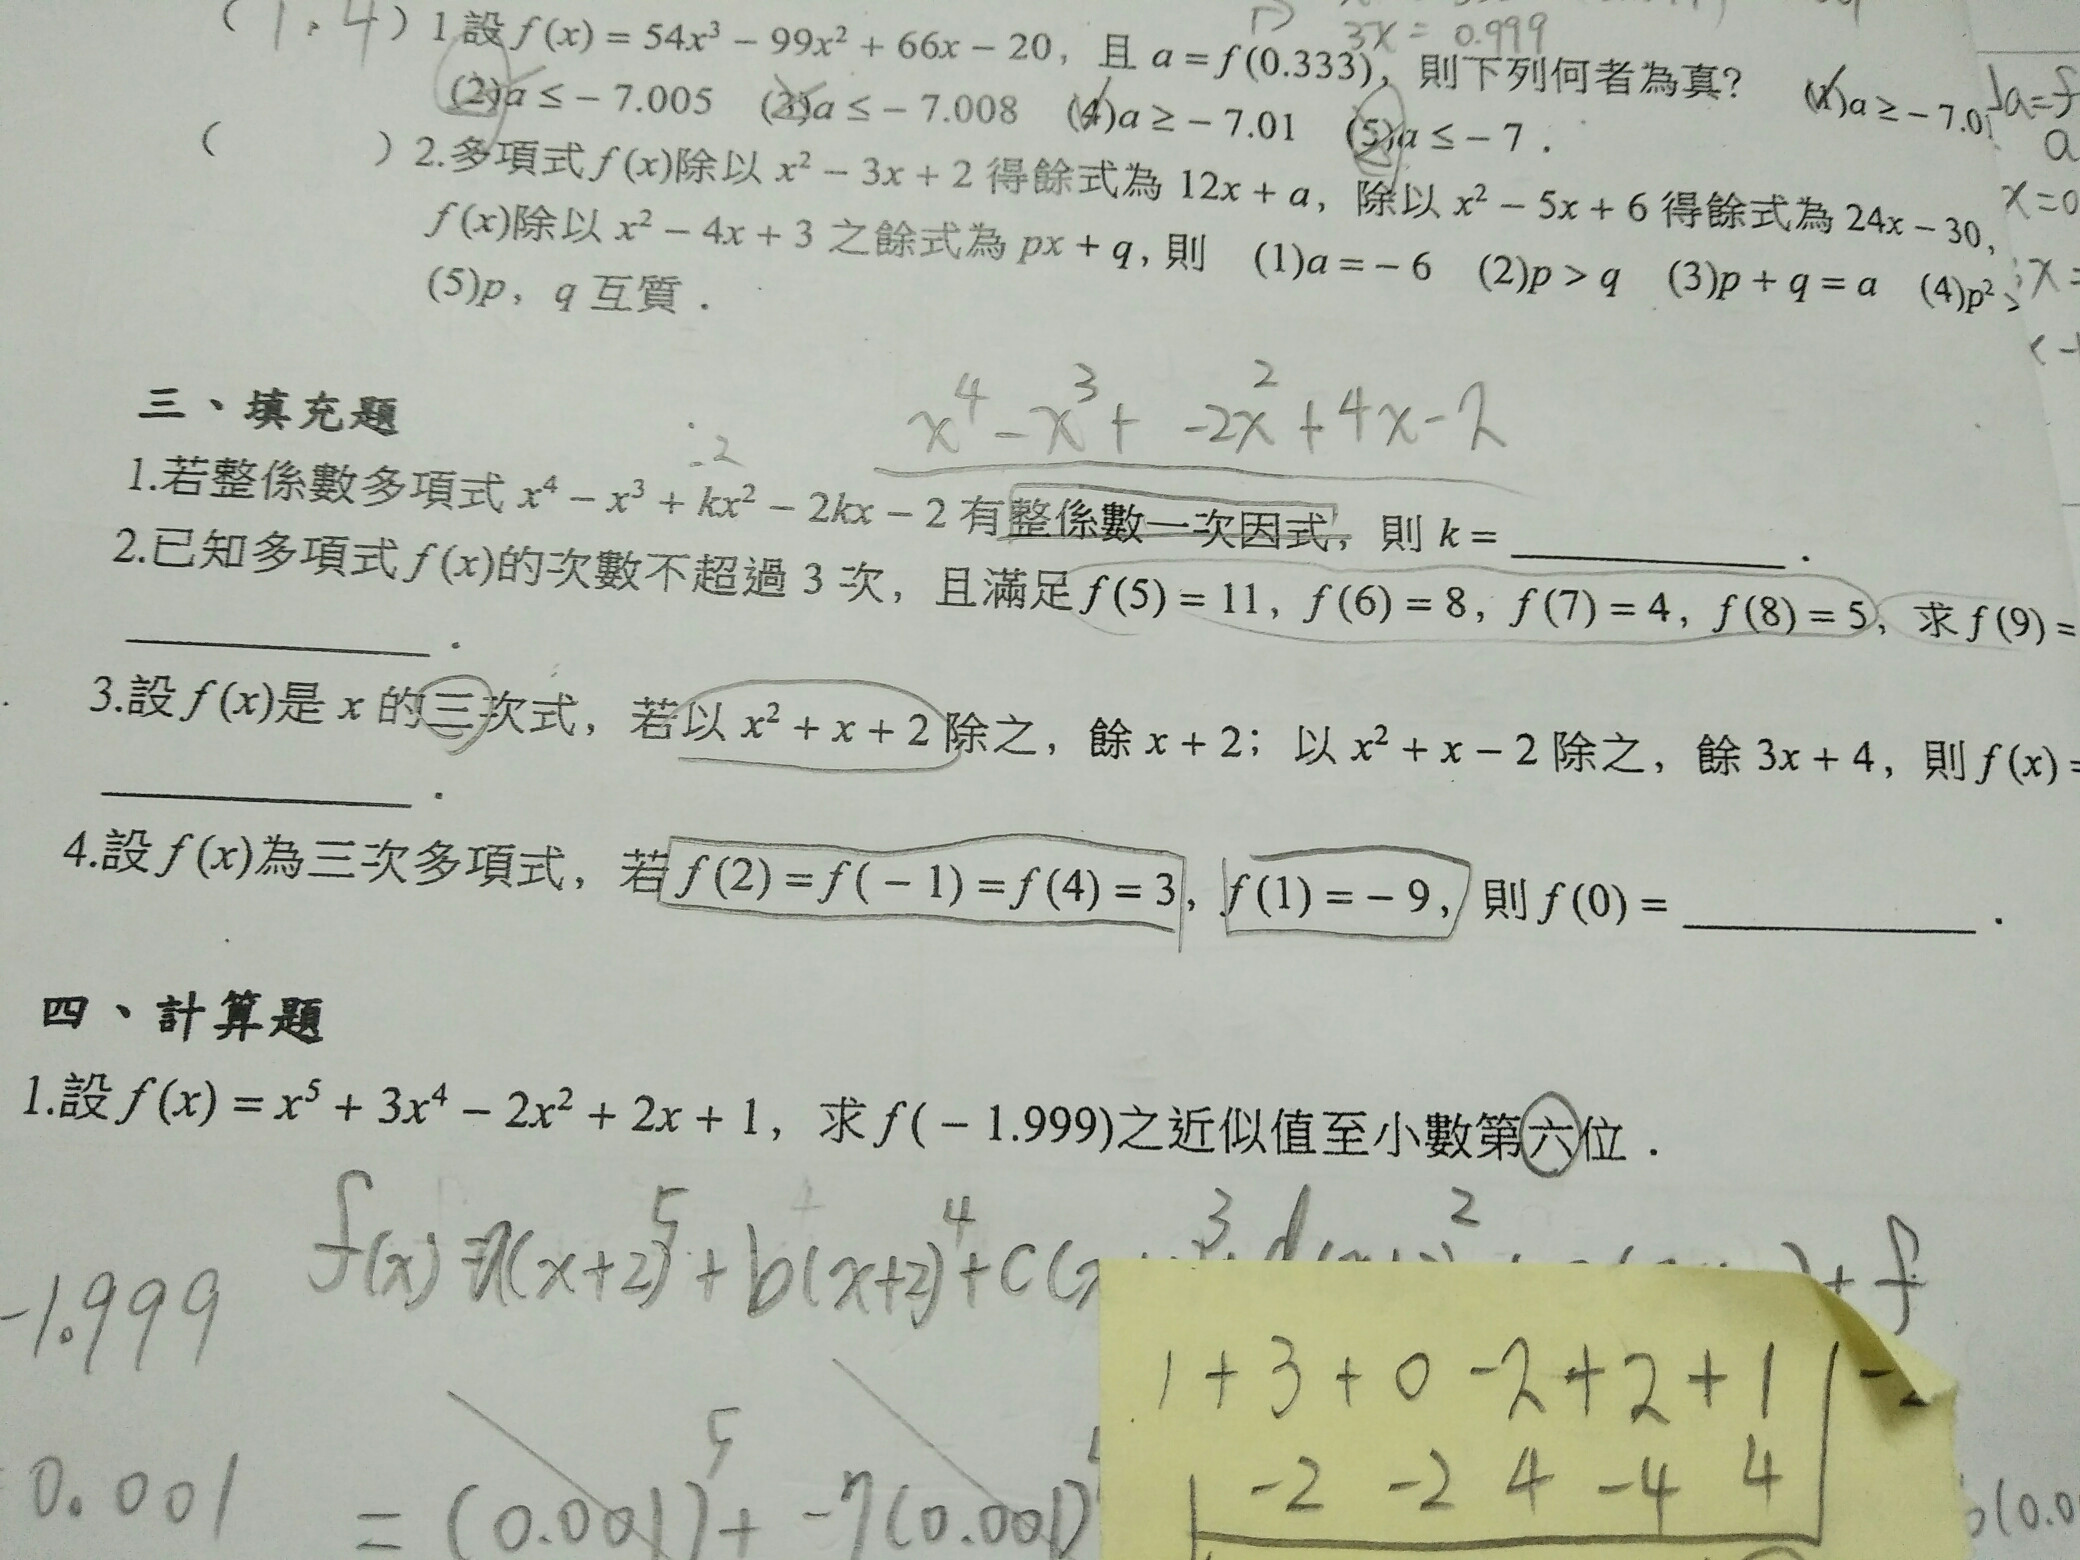 (1.4) 1.設 f(x) = 54x³ − 99x² + 66x − 20，且 a = f(0.333)，則下列何者為真? (1)a ≥ − 7.01
3x = 0.999
(2)a ≤ − 7.005 (3)a ≤ − 7.008 (4)a ≥ − 7.01 (5)a ≤ − 7．
( ) 2.多項式 f(x)除以 x² − 3x + 2 得餘式為 12x + a，除以 x² − 5x + 6 得餘式為 24x − 30，
f(x)除以 x² − 4x + 3 之餘式為 px + q, 則 (1)a = − 6 (2)p > q (3)p + q = a (4)p² >
(5)p，q 互質．
三、填充題
x⁴ − x³ + −2x² + 4x − 2
−2
1.若整係數多項式 x⁴ − x³ + kx² − 2kx − 2 有整係數一次因式，則 k = ．
2.已知多項式 f(x)的次數不超過 3 次，且滿足 f(5) = 11, f(6) = 8, f(7) = 4, f(8) = 5，求 f(9) =
．
3.設 f(x)是 x 的三次式，若以 x² + x + 2 除之，餘 x + 2；以 x² + x − 2 除之，餘 3x + 4，則 f(x) =
．
4.設 f(x)為三次多項式，若 f(2) = f( − 1) = f(4) = 3，f(1) = − 9，則 f(0) = ．
四、計算題
1.設 f(x) = x⁵ + 3x⁴ − 2x² + 2x + 1，求 f( − 1.999)之近似值至小數第六位．
f(x) = (x+2)⁵ + b(x+2)⁴ + c + f
−1.999
1 + 3 + 0 −2 + 2 + 1 −2
−2 −2 4 −4 4
0.001 = (0.001)⁵ + −7(0.001)